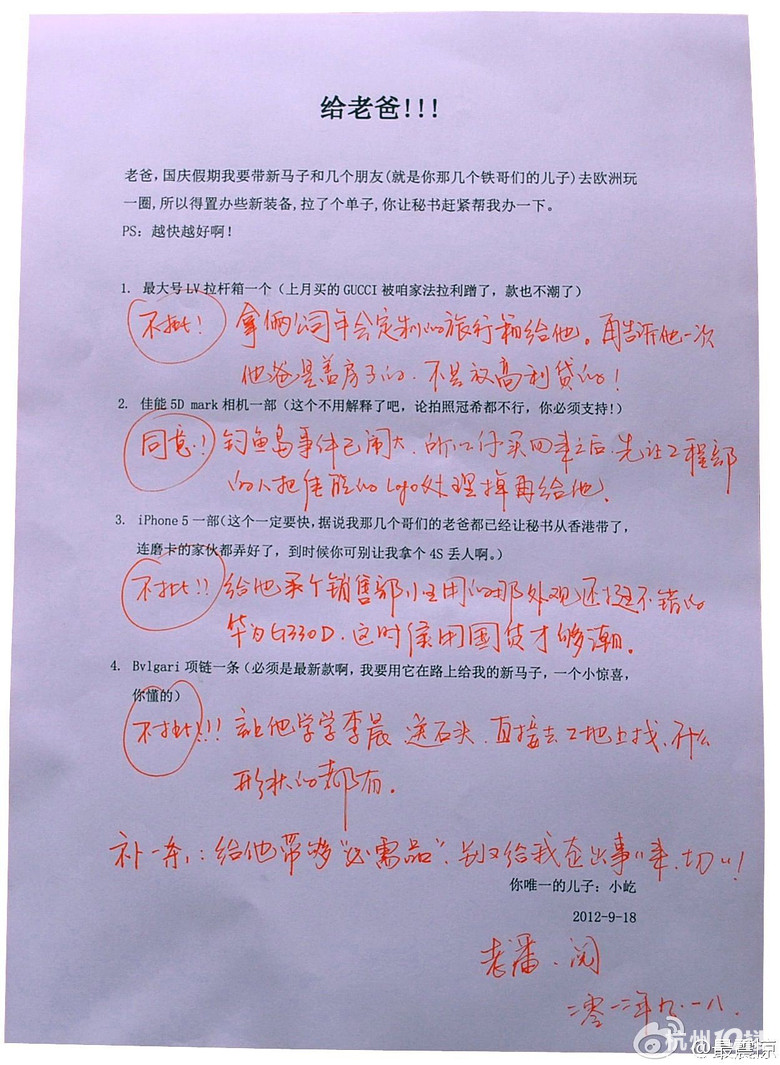 给老爸!!!
老爸,国庆假期我要带新马子和几个朋友(就是你那几个铁哥们的儿子)去欧洲玩
一圈,所以得置办些新装备,拉了个单子,你让秘书赶紧帮我办一下。
PS: 越快越好啊!
1. 最大号LV拉杆箱一个(上月买的GUCCI被咱家法拉利蹭了,款也不潮了)
不批! 拿俩公司年会定制的旅行箱给他。再告诉他一次
他爸是盖房子的.不是放高利贷的!
2. 佳能5D mark相机一部(这个不用解释了吧,论拍照冠希都不行,你必须支持!)
同意! 钓鱼岛事件已闹大.所以 买回来之后.先让工程部
的人把佳能的Logo处理掉再给他.
3. iPhone 5一部(这个一定要快,据说我那几个哥们的老爸都已经让秘书从香港带了,
连磨卡的家伙都弄好了,到时候你可别让我拿个4S丢人啊。)
不批!! 给他买个销售部小王用的那外观还挺不错的
华为G330D.这时候用国货才够潮。
4. Bvlgari项链一条(必须是最新款啊,我要用它在路上给我的新马子,一个小惊喜,
你懂的)
不批!!! 让他学学李晨 送石头.直接去工地上找.什么
形状的都有.
补一条:给他带够“必需品”.别又给我 出事 !
你唯一的儿子: 小屹
2012-9-18
老潘.阅
二零一二年九.一八.
杭州19楼
@最震惊